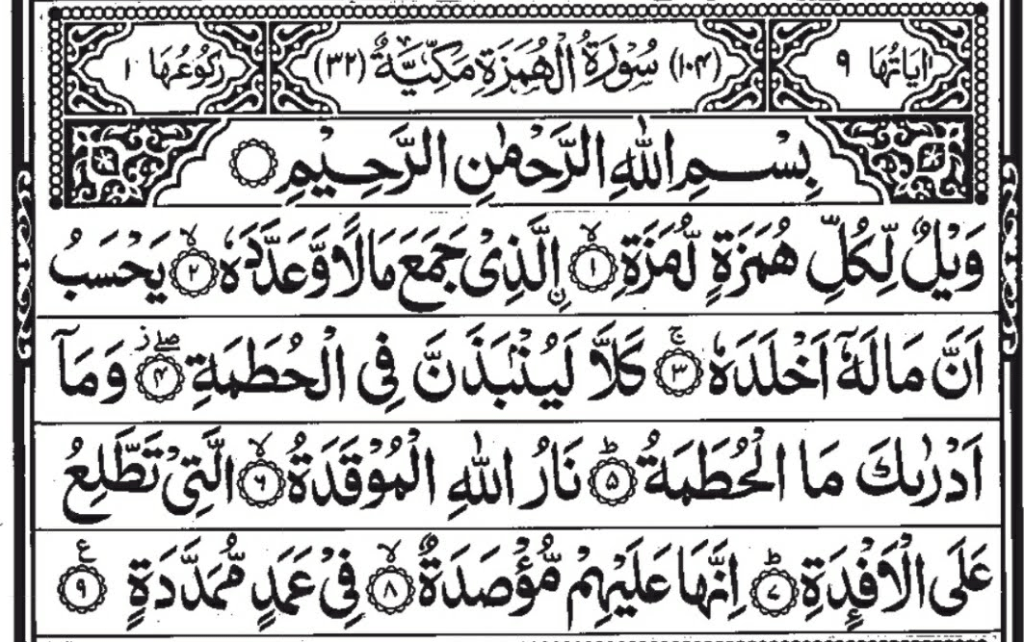 اٰیَاتُهَا ٩ (١٠٤) سُوْرَةُ الْهُمَزَةِ مَكِّیَّةٌ (٣٢) رُكُوْعُهَا ١
بِسْمِ اللّٰهِ الرَّحْمٰنِ الرَّحِیْمِ
وَیْلٌ لِّكُلِّ هُمَزَةٍ لُّمَزَةِۙ ﴿١﴾ اِ۟لَّذِیْ جَمَعَ مَالًا وَّعَدَّدَهٗۙ ﴿٢﴾ یَحْسَبُ
اَنَّ مَالَهٗۤ اَخْلَدَهٗۚ ﴿٣﴾ كَلَّا لَیُنْۢبَذَنَّ فِی الْحُطَمَةِؗۖ ﴿٤﴾ وَمَاۤ
اَدْرٰىكَ مَا الْحُطَمَةُؕ ﴿٥﴾ نَارُ اللّٰهِ الْمُوْقَدَةُۙ ﴿٦﴾ الَّتِیْ تَطَّلِعُ
عَلَی الْاَفْـِٕدَةِؕ ﴿٧﴾ اِنَّهَا عَلَیْهِمْ مُّؤْصَدَةٌۙ ﴿٨﴾ فِیْ عَمَدٍ مُّمَدَّدَةٍ ﴿٩﴾ ع